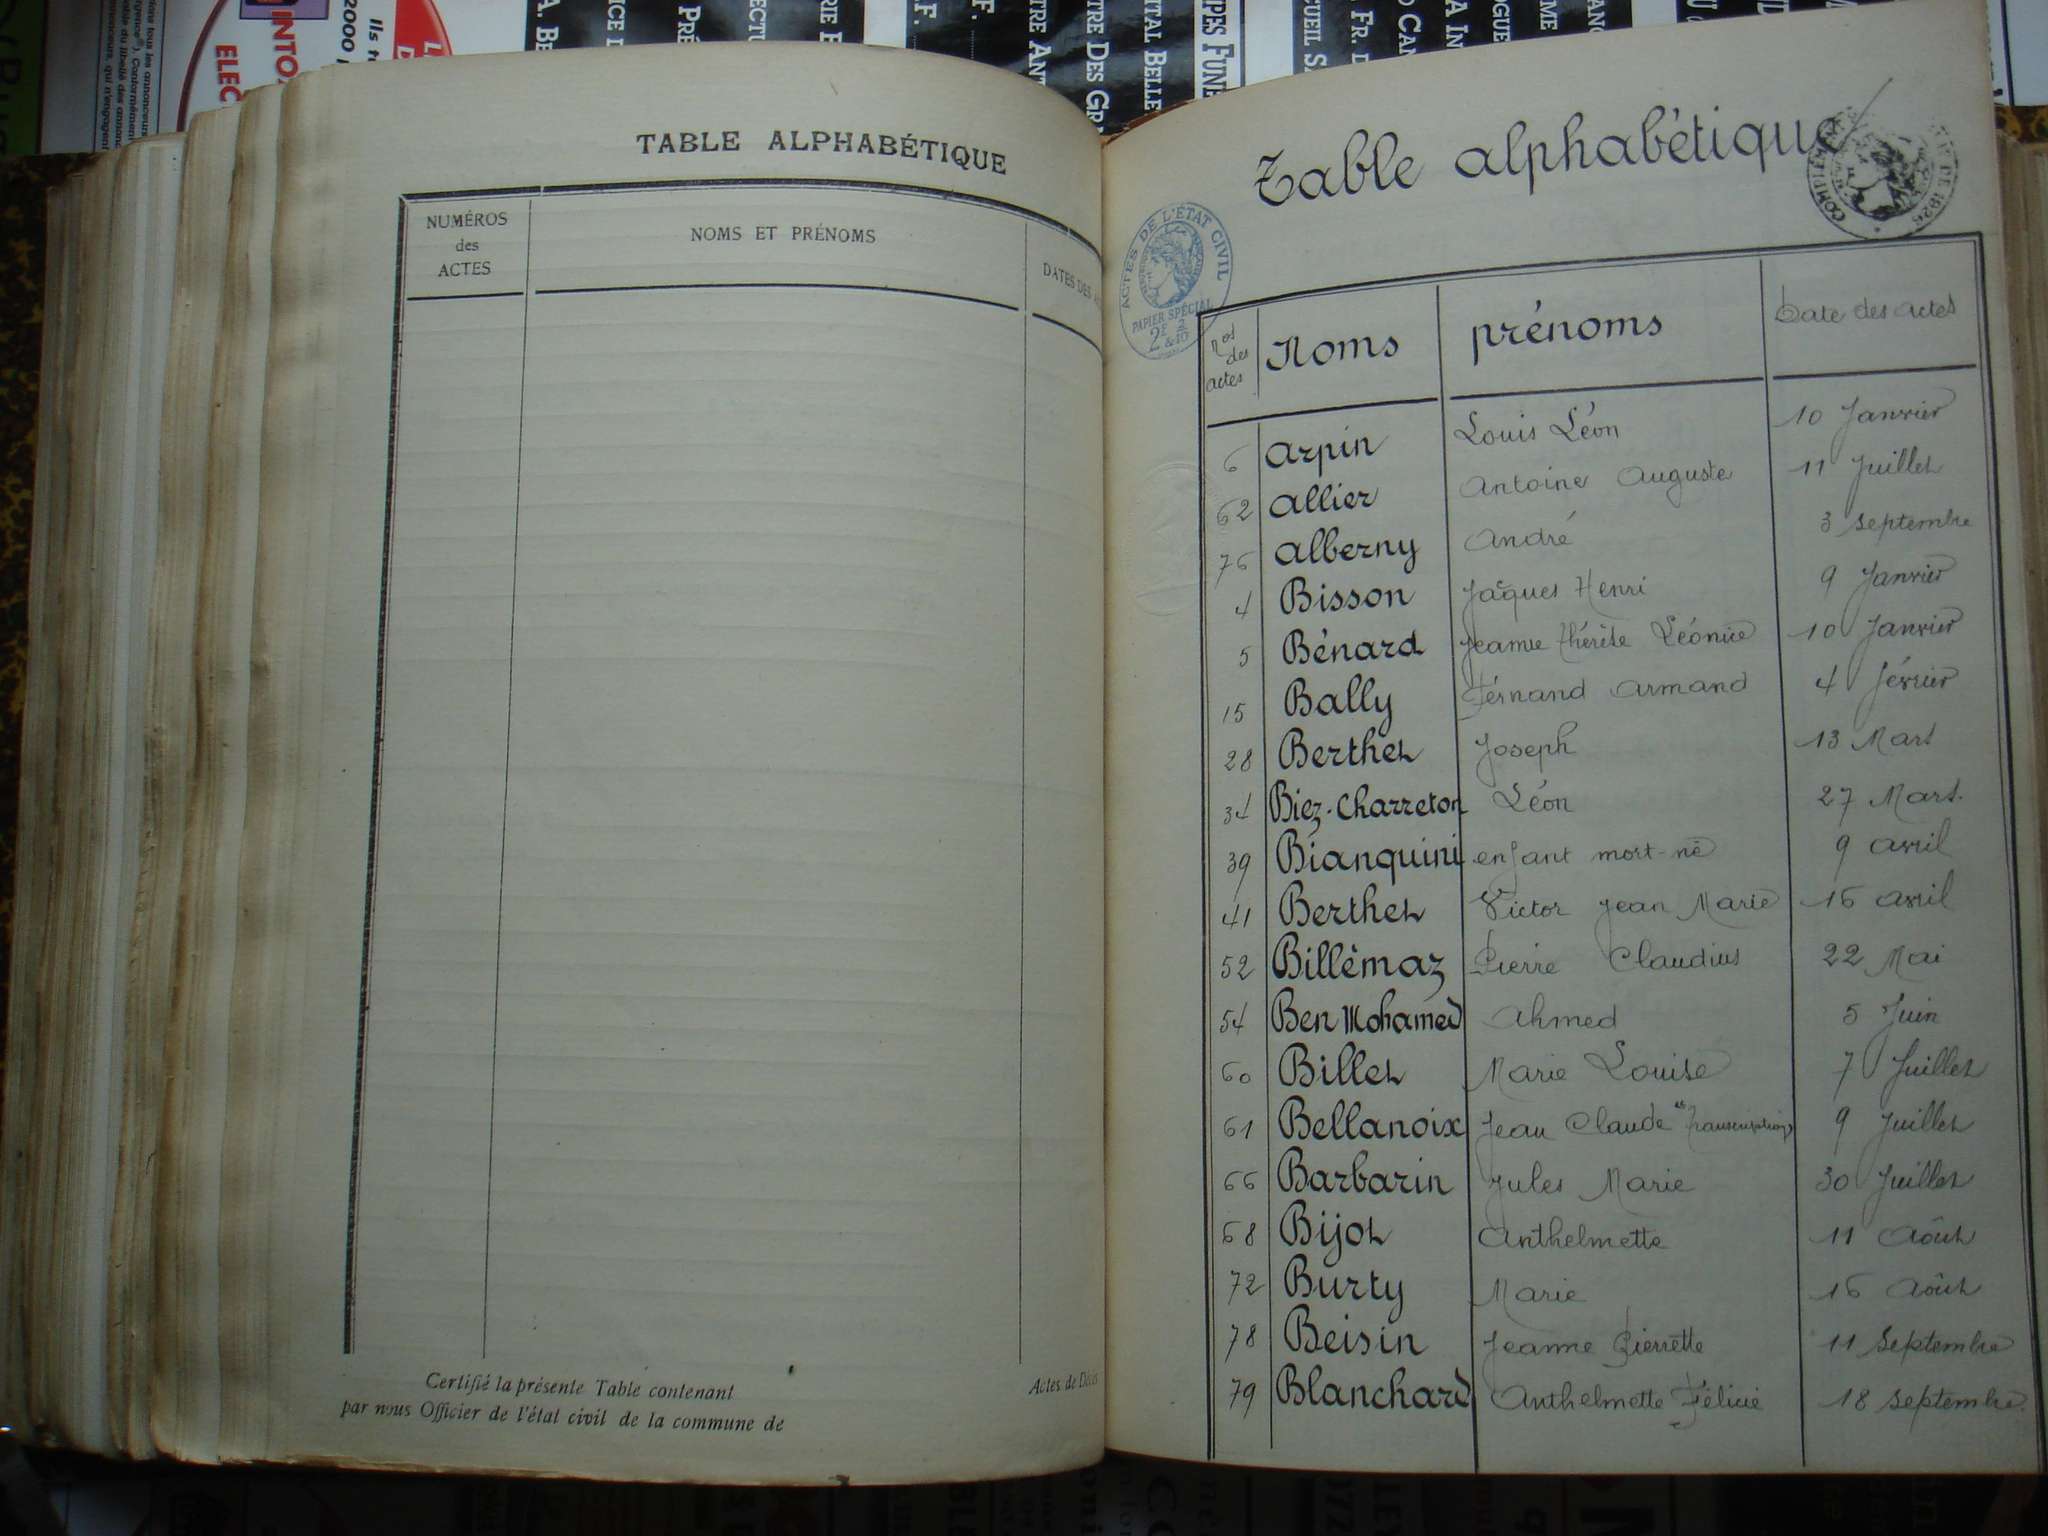 TABLE ALPHABÉTIQUE
NUMÉROS
des
ACTES
NOMS ET PRÉNOMS
DATES DES
Certifié la présente Table contenant
par nous Officier de l'état civil de la commune de
Actes de Décès
Table alphabétique
ACTES DE L'ÉTAT CIVIL
PAPIER SPÉCIAL
Nos des actes Noms prénoms Date des actes
6 Arpin Louis Léon 10 Janvier
62 Allier Antoine Auguste 11 Juillet
76 Alberny André 3 Septembre
4 Bisson Jaques Henri 9 Janvier
5 Bénard Jeanne Thérèse Léonie 10 Janvier
15 Bally Fernand Armand 4 Février
28 Berthet Joseph 13 Mars
34 Biez-Charreton Léon 27 Mars.
39 Bianquini enfant mort-né 9 Avril
41 Berthet Victor Jean Marie 16 Avril
52 Billémaz Pierre Claudius 22 Mai
54 Ben Mohamed Ahmed 5 Juin
60 Billet Marie Louise 7 Juillet
61 Bellanoix Jean Claude "transcription" 9 Juillet
66 Barbarin Jules Marie 30 Juillet
68 Bijot Anthelmette 11 Août
72 Burty Marie 16 Août
78 Beisin Jeanne Pierrette 11 Septembre
79 Blanchard Anthelmette Félicie 18 Septembre